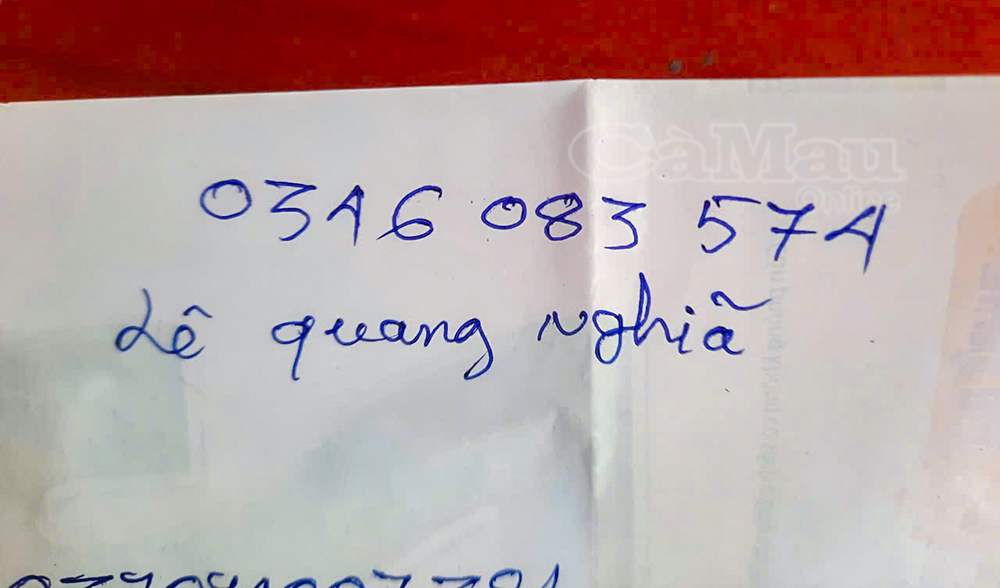 CàMau
Online
0346 083 574
Lê quang nghiã